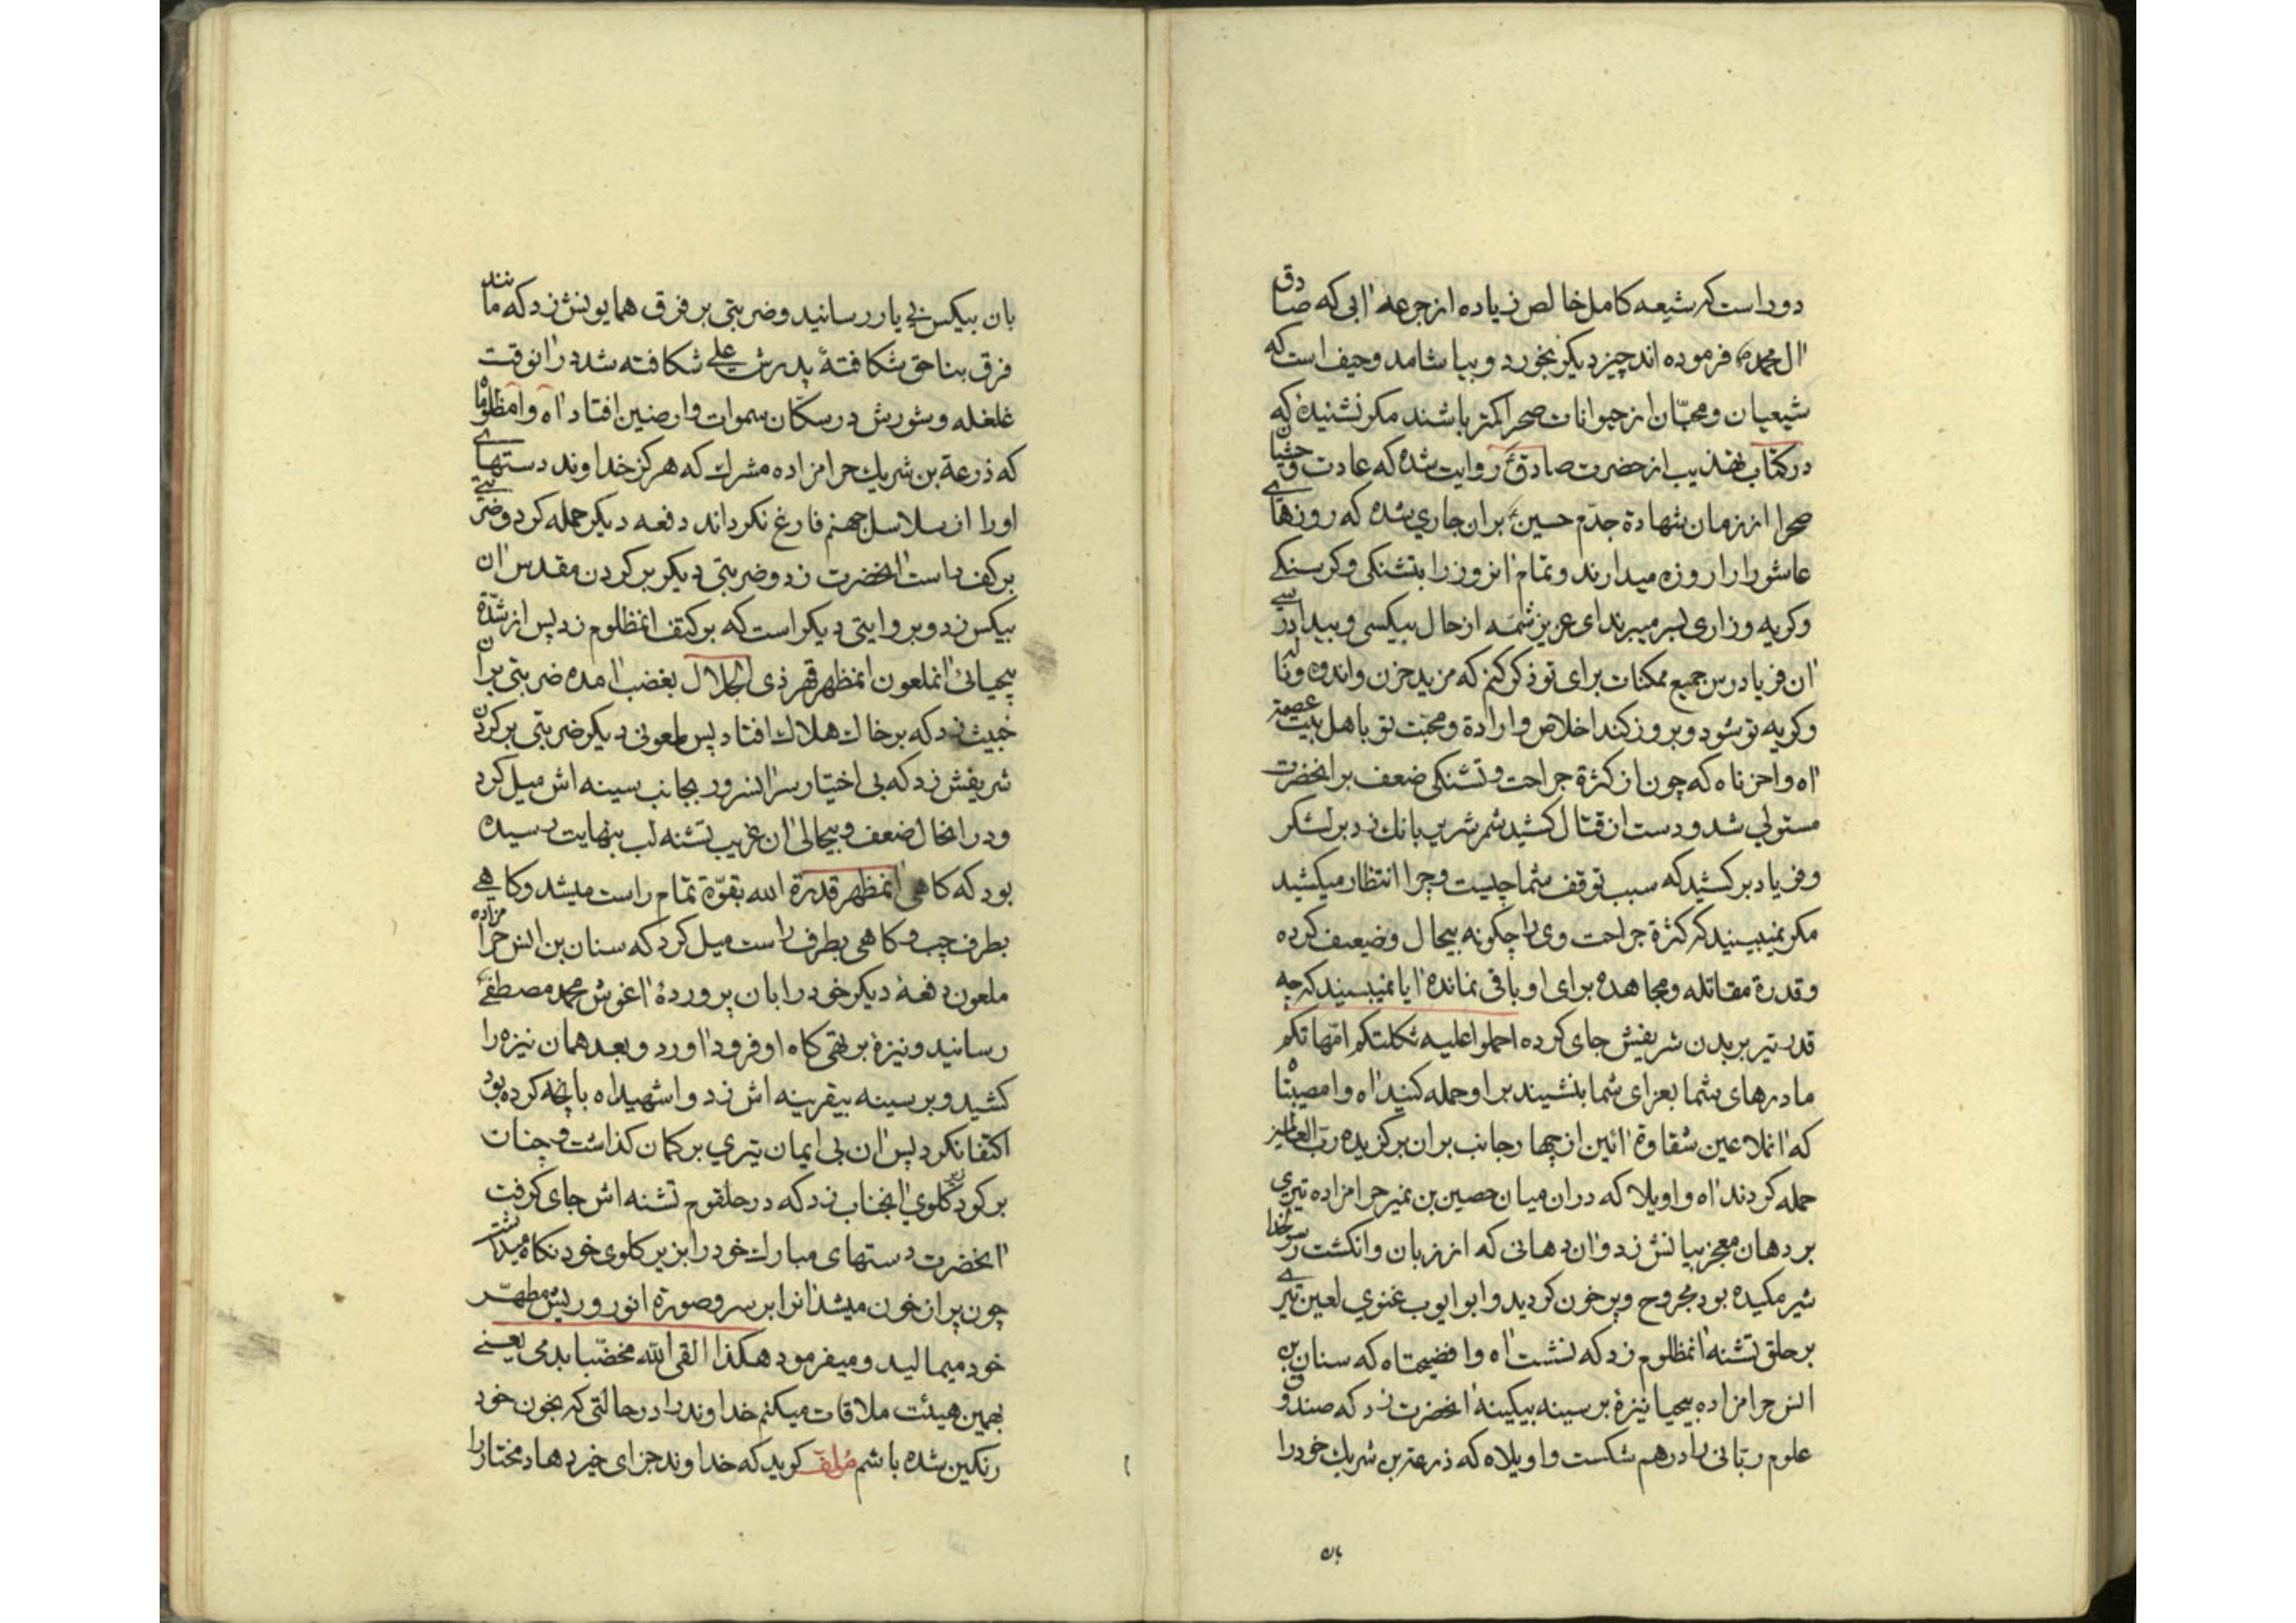 دور است که شیعه کامل خالص زیاده از جرعه آبی که صادق
آل محمد ص فرموده اند چیز دیکر بخورد و بیاشامد و حیف است که
شیعیان و محبّان از حیوانات صحرا کمتر باشند مکر نشنیدهٔ که
در کتاب تهذیب از حضرت صادق ع روایت شده که عادت وحشیان
صحرا از زمان شهادة جدّم حسین ع بران جاري شده که روزهاے
عاشورا را روزه میدارند و تمام آنروز را بتشنکی و کرسنکے
و کریه و زاری بسر میبرند ای عزیز شمّه از حال بیکسی و بیدادرسے
آن فریادرس جمیع ممکنات برای تو ذکر کنم که مزید حزن و اندوه و ناله
و کریه تو شود و بروز کند اخلاص و ارادة و محبّت تو باهل بیت عصمة
آه واحزناه که چون از کثرة جراحت و تشنکی ضعف بر آنحضرت
مستولي شد و دست از قتال کشید شمر شریر بانك زد بر لشکر
و فریاد بر کشید که سبب توقف شما چیست و چرا انتظار میکشید
مکر نمیبینید که کثرة جراحت وی را چکونه بیحال و ضعیف کرده
و قدرة مقاتله و مجاهده برای او باقی نمانده آیا نمیبینید که چه
قدر تیر بر بدن شریفش جای کرده احملوا علیه ثکلتکم امّهاتکم
مادرهای شما بعزای شما بنشیند بر او حمله کنید آه وامصیبتاه
که آنملاعین شقاوة آئین از چهار جانب بران برکزیده ربّ العالمین
حمله کردند آه واویلا که دران میان حصین بن نمیر حرامزاده تیری
بر دهان معجز بیانش زد و آن دهانی که از زبان و انکشت رسولخدا
شیر مکیده بود مجروح و پر خون کردید و ابو ایوب غنوي لعین تیرے
بر حلق تشنه آنمظلوم زد که نشست آه وافضیحتاه که سنان بن
انس حرامزاده بیحیا نیزهٔ بر سینه بیکینه آنحضرت زد که صندوق
علوم ربّانی را درهم شکست واویلاه که ذرعة بن شریك خود را
بان
بان بیکس بی یار رسانید و ضربتی بر فرق همایونش زد که مانند
فرق بناحق شکافتهٔ پدرش علے شکافته شد درانوقت
غلغله و شورش در سکّان سموات و ارضین افتاد آه وامظلوماه
که ذرعة بن شریك حرامزاده مشرك که هرکز خداوند دستهاے
او را از سلاسل جهنم فارغ نکرداند دفعه دیکر حمله کرد و ضربتے
بر کف راست آنحضرت زد و ضربتی دیکر بر کردن مقدس آن
بیکس زد و بروایتی دیکر است که بر کتف انمظلوم زد پس از شدّة
بیحیائی آنملعون انمظهر قهر ذی الجلال بغضب آمده ضربتی بران
خبیث زد که بر خاك هلاك افتاد پس ملعونی دیکر ضربتی بر کردن
شریفش زد که بی اختیار سر آنسرور بجانب سینه اش میل کرد
و در آنحال ضعف و بیحالی آن غریب تشنه لب بنهایت رسیده
بود که کاهی آنمظهر قدرة الله بقوّة تمام راست میشد و کاهے
بطرف چپ و کاهی بطرف راست میل کرد که سنان بن انس حرامزاده
ملعون دفعهٔ دیکر خود را بان پروردهٔ آغوش محمد مصطفے ص
رسانید و نیزهٔ بر تهی کاه او فرود آورد و بعد همان نیزه را
کشید و بر سینه بیقرینه اش زد واشهیداه بانچه کرده بود
اکتفا نکرد پس آن بی ایمان تیري بر کمان کذاشت و چنان
بر کودی زیر کلوي آنجناب زد که در حلقوم تشنه اش جای کرفت
آنحضرت دستهای مبارك خود را بزیر کلوی خود نکاه میداشت
چون پر از خون میشد آنرا بر سر و صورة انور و ریش مطهّر
خود میمالید و میفرمود هکذا القی الله مخضّبا بدمی یعنے
بهمین هیئت ملاقات میکنم خداوند را در حالتی که بخون خود
رنکین شده باشم مؤلف کوید که خداوند جزای خیر دهاد مختار را